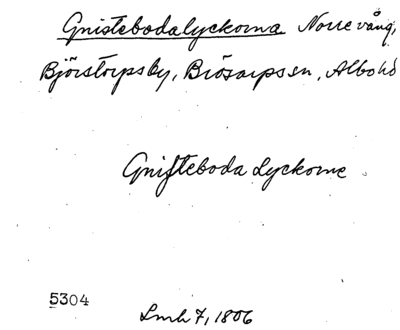 Gnistebodalyckorna Norrevång,
Björstorpsby, Brösarpssn, Albohd
Gnisteboda Lyckorne
5304
Lmh 7, 1806